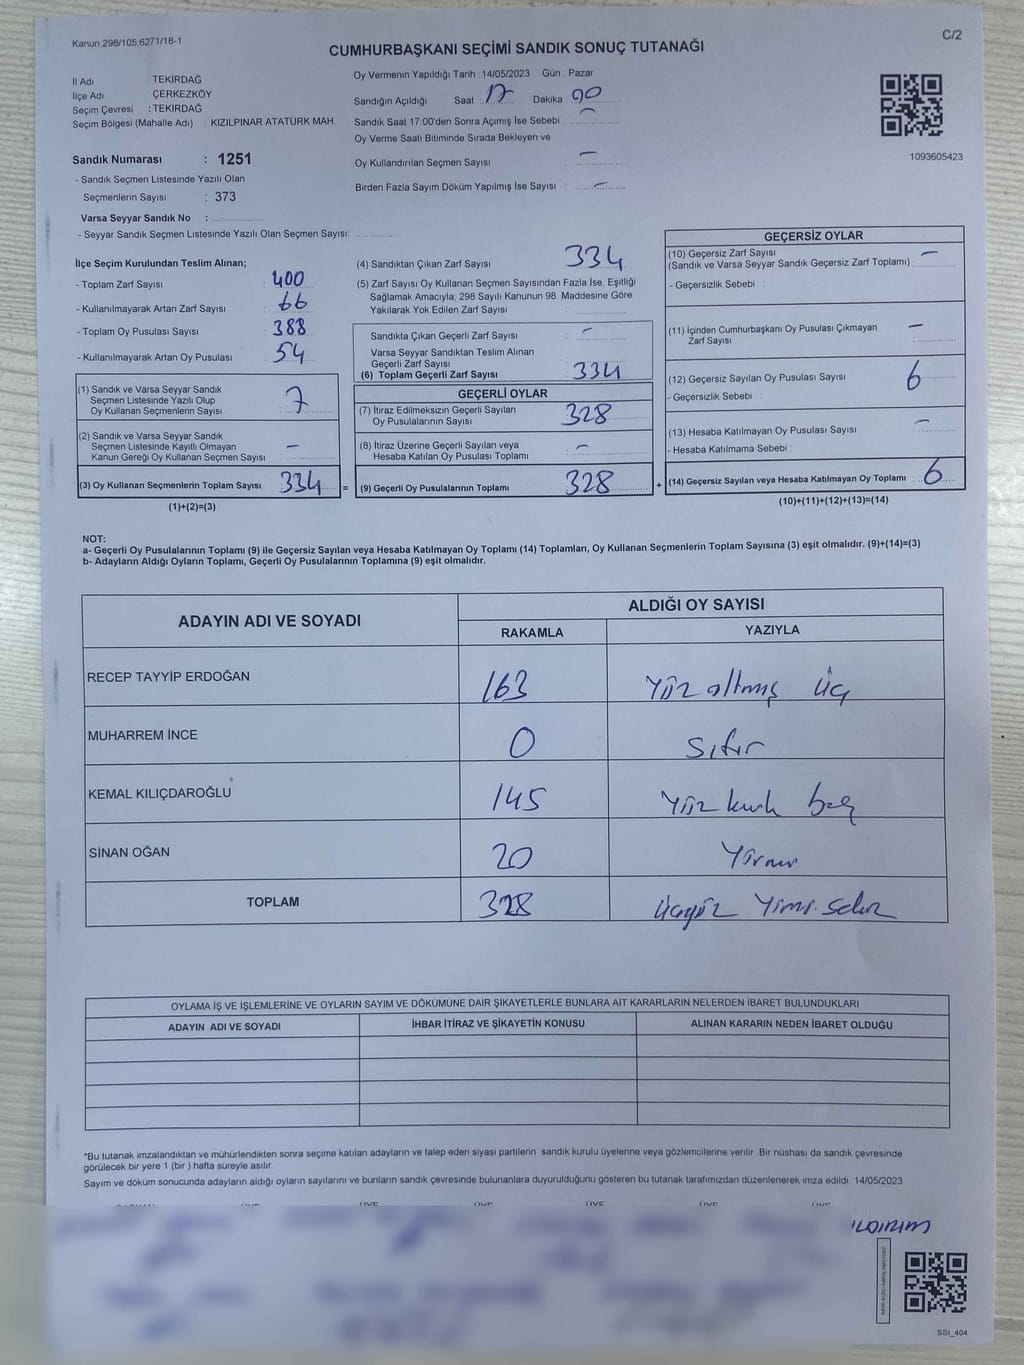 Kanun;298/105;6271/18-1
C/2
CUMHURBAŞKANI SEÇİMİ SANDIK SONUÇ TUTANAĞI
İl Adı TEKİRDAĞ
İlçe Adı ÇERKEZKÖY
Seçim Çevresi : TEKİRDAĞ
Seçim Bölgesi (Mahalle Adı) : KIZILPINAR ATATÜRK MAH.
Oy Vermenin Yapıldığı Tarih : 14/05/2023 Gün : Pazar
Sandığın Açıldığı Saat 17 Dakika 00
Sandık Saat 17:00'den Sonra Açımış İse Sebebi :
Oy Verme Saati Bitiminde Sırada Bekleyen ve
Oy Kullandırılan Seçmen Sayısı : —
Birden Fazla Sayım Döküm Yapılmış İse Sayısı : —
1093605423
Sandık Numarası : 1251
- Sandık Seçmen Listesinde Yazılı Olan
Seçmenlerin Sayısı : 373
Varsa Seyyar Sandık No :
- Seyyar Sandık Seçmen Listesinde Yazılı Olan Seçmen Sayısı:
İlçe Seçim Kurulundan Teslim Alınan;
- Toplam Zarf Sayısı : 400
- Kullanılmayarak Artan Zarf Sayısı : 66
- Toplam Oy Pusulası Sayısı : 388
- Kullanılmayarak Artan Oy Pusulası : 54
(1) Sandık ve Varsa Seyyar Sandık
Seçmen Listesinde Yazılı Olup
Oy Kullanan Seçmenlerin Sayısı : 7
(2) Sandık ve Varsa Seyyar Sandık
Seçmen Listesinde Kayıtlı Olmayan
Kanun Gereği Oy Kullanan Seçmen Sayısı : —
(3) Oy Kullanan Seçmenlerin Toplam Sayısı : 334
(1)+(2)=(3)
(4) Sandıktan Çıkan Zarf Sayısı : 334
(5) Zarf Sayısı Oy Kullanan Seçmen Sayısından Fazla İse, Eşitliği
Sağlamak Amacıyla; 298 Sayılı Kanunun 98. Maddesine Göre
Yakılarak Yok Edilen Zarf Sayısı :
Sandıkta Çıkan Geçerli Zarf Sayısı : —
Varsa Seyyar Sandıktan Teslim Alınan
Geçerli Zarf Sayısı :
(6) Toplam Geçerli Zarf Sayısı : 334
GEÇERLİ OYLAR
(7) İtiraz Edilmeksizin Geçerli Sayılan
Oy Pusulalarının Sayısı : 328
(8) İtiraz Üzerine Geçerli Sayılan veya
Hesaba Katılan Oy Pusulası Toplamı : —
= (9) Geçerli Oy Pusulalarının Toplamı : 328
GEÇERSİZ OYLAR
(10) Geçersiz Zarf Sayısı —
(Sandık ve Varsa Seyyar Sandık Geçersiz Zarf Toplamı) :
- Geçersizlik Sebebi :
(11) İçinden Cumhurbaşkanı Oy Pusulası Çıkmayan
Zarf Sayısı : —
(12) Geçersiz Sayılan Oy Pusulası Sayısı : 6
- Geçersizlik Sebebi :
(13) Hesaba Katılmayan Oy Pusulası Sayısı : —
- Hesaba Katılmama Sebebi :
+ (14) Geçersiz Sayılan veya Hesaba Katılmayan Oy Toplamı : 6
(10)+(11)+(12)+(13)=(14)
NOT:
a- Geçerli Oy Pusulalarının Toplamı (9) ile Geçersiz Sayılan veya Hesaba Katılmayan Oy Toplamı (14) Toplamları, Oy Kullanan Seçmenlerin Toplam Sayısına (3) eşit olmalıdır. (9)+(14)=(3)
b- Adayların Aldığı Oyların Toplamı, Geçerli Oy Pusulalarının Toplamına (9) eşit olmalıdır.
ADAYIN ADI VE SOYADI ALDIĞI OY SAYISI
RAKAMLA YAZIYLA
RECEP TAYYİP ERDOĞAN 163 Yüz altmış üç
MUHARREM İNCE 0 Sıfır
KEMAL KILIÇDAROĞLU 145 Yüz kırk beş
SİNAN OĞAN 20 Yirmi
TOPLAM 328 Üçyüz Yirmi Sekiz
OYLAMA İŞ VE İŞLEMLERİNE VE OYLARIN SAYIM VE DÖKÜMÜNE DAİR ŞİKAYETLERLE BUNLARA AİT KARARLARIN NELERDEN İBARET BULUNDUKLARI
ADAYIN ADI VE SOYADI İHBAR İTİRAZ VE ŞİKAYETİN KONUSU ALINAN KARARIN NEDEN İBARET OLDUĞU
*Bu tutanak imzalandıktan ve mühürlendikten sonra seçime katılan adayların ve talep eden siyasi partilerin sandık kurulu üyelerine veya gözlemcilerine verilir. Bir nüshası da sandık çevresinde
görülecek bir yere 1 (bir ) hafta süreyle asılır.
Sayım ve döküm sonucunda adayların aldığı oyların sayılarını ve bunların sandık çevresinde bulunanlara duyurulduğunu gösteren bu tutanak tarafımızdan düzenlenerek imza edildi. 14/05/2023
ÜYE ÜYE ÜYE ÜYE ÜYE ÜYE
ILDIRIM
SSI_404